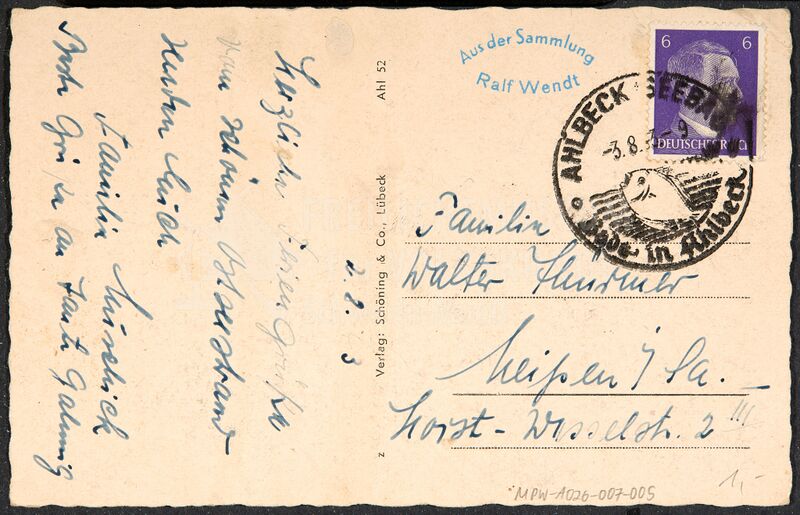 Herzliche Feriengrüße
vom schönen Ostseestrand
senden Euch
Familie
Beste Grüße an Tante
2.8.43
Verlag: Schöning & Co., Lübeck
Ahl 52
z
Aus der Sammlung
Ralf Wendt
6 6
DEUTSCHES REICH
AHLBECK SEEBAD
-3.8.
-9
Bade in Ahlbeck
Familie
Walter Thürmer
Meißen i/Sa.
Horst-Wesselstr. 2 III
1,-
MPW-A026-007-005